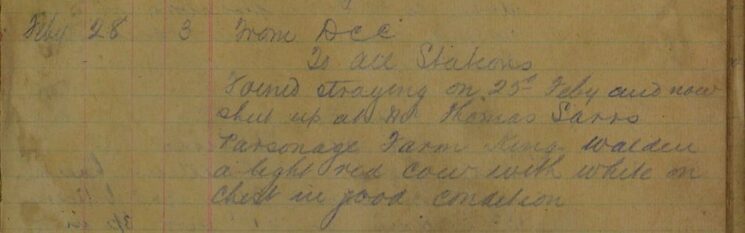 Feby 28 3 From DCC
To all Stations
Found straying on 25th Feby and now
shut up at Mr Thomas Sarrs
Parsonage Farm Kings Walden
a light red cow with white on
chest in good condition